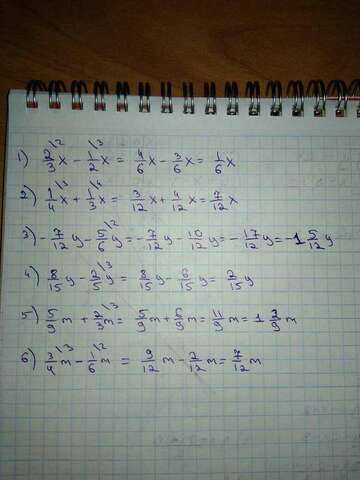 1) 2/3\2 x - 1/2\3 x = 4/6 x - 3/6 x = 1/6 x
2) 1/4\3 x + 1/3\4 x = 3/12 x + 4/12 x = 7/12 x
3) - 7/12 y - 5/6\2 y = - 7/12 y - 10/12 y = - 17/12 y = -1 5/12 y
4) 8/15 y - 2/5\3 y = 8/15 y - 6/15 y = 2/15 y
5) 5/9 m + 2/3\3 m = 5/9 m + 6/9 m = 11/9 m = 1 2/9 m
6) 3/4\3 m - 1/6\2 m = 9/12 m - 2/12 m = 7/12 m